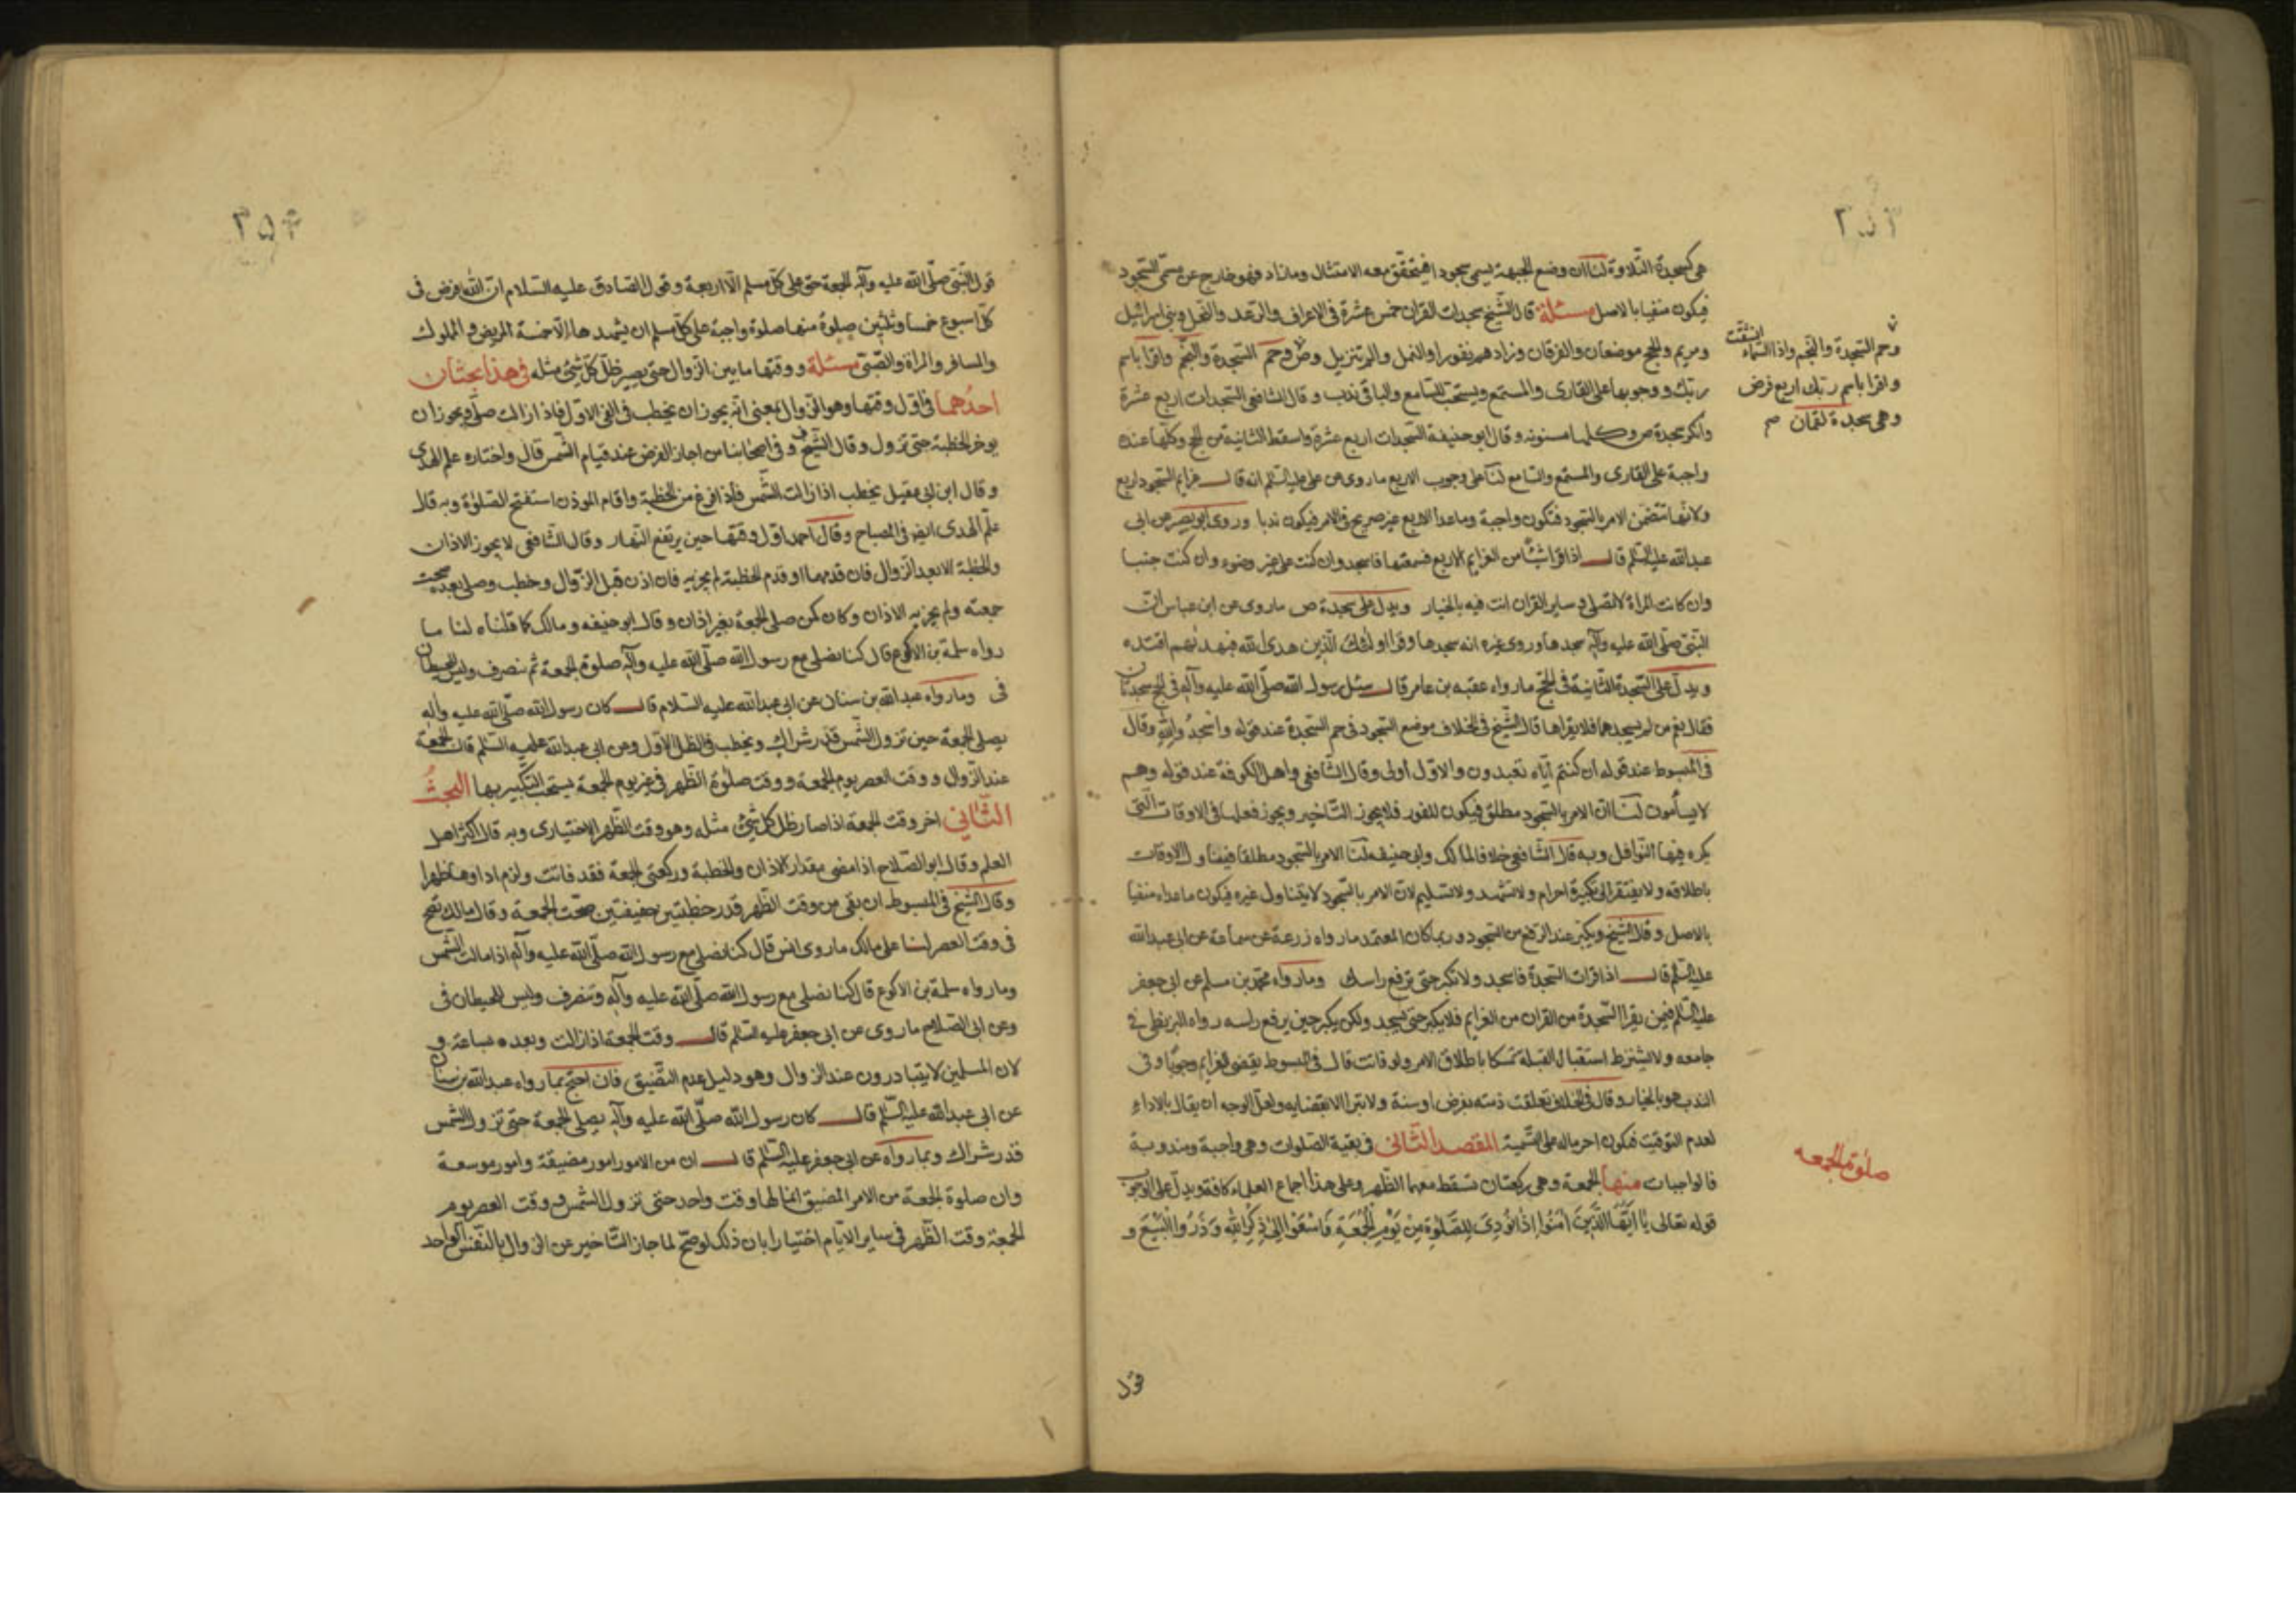 ٢٥٣
هى كسجدة التلاوة لنا ان وضع الجبهة يسمى سجودا فيتحقق معه الامتثال وما زاد فهو خارج عن مسمى السجود
فيكون منفيا بالاصل مسئلة قال الشيخ سجدات القران خمس عشرة فى الاعراف والرعد والنحل وبنى اسرائيل
ومريم والحج موضعان والفرقان وزادهم نفورا والنمل والم تنزيل وص وحم السجدة والنجم واقرا باسم
ربك ووجوبها على القارى والمستمع ويستحب للسامع والباقى ندب وقال الشافعى السجدات اربع عشرة
وانكر سجدة ص وكلها مسنونه وقال ابو حنيفة السجدات اربع عشرة واسقط الثانية من الحج وكلها عنده
واجبة على القارى والمستمع والسامع لنا على وجوب الاربع ما روى عن على عليه السلم انه قال عزايم السجود اربع
ولانها تتضمن الامر بالسجود فتكون واجبة وما عدا الاربع غير صريح فى الامر فيكون ندبا وروى ابو بصير عن ابى
عبدالله عليه السلم قال اذا قرا شيئا من العزايم الاربع فسمعتها فاسجد وان كنت على غير وضوء وان كنت جنبا
وان كانت المراة لا تصلى وساير القران انت فيه بالخيار ويدل على سجدة ص ما روى عن ابن عباس ان
النبى صلى الله عليه وآله سجدها وروى غيره انه سجدها وقرا اولئك الذين هدى الله فبهديهم اقتده
ويدل على السجدة الثانية فى الحج ما رواه عقبه بن عامر قال سئل رسول الله صلى الله عليه وآله فى الحج سجدتان
فقال نعم من لم يسجدهما فلا يقراها قال الشيخ فى الخلاف موضع السجود فى حم السجدة عند قوله واسجدوا لله وقال
فى المبسوط عند قوله ان كنتم اياه تعبدون والاول اولى وقال الشافعى واهل الكوفة عند قوله وهم
لا يسأمون لنا ان الامر بالسجود مطلق فيكون للفور فلا يجوز التاخير ويجوز فعلها فى الاوقات التى
يكره فيها النوافل وبه قال الشافعى خلافا لمالك وابى حنيفه لنا الامر بالسجود مطلقا فيتناول الاوقات
باطلاقه ولا يفتقر الى تكبيرة احرام ولا تشهد ولا تسليم لان الامر بالسجود لا يتناول غيره فيكون ما عداه منفيا
بالاصل وقال الشيخ ويكبر عند الرفع من السجود وربما كان المعتمد ما رواه زرعة عن سماعة عن ابى عبدالله
عليه السلم قال اذا قرات السجدة فاسجد ولا تكبر حتى ترفع راسك وما رواه محمد بن مسلم عن ابى جعفر
عليه السلم فيمن يقرا السجدة من القران من العزايم فلا يكبر حتى يسجد ولكن يكبر حين يرفع راسه رواه البزنطى فى
جامعه ولا يشترط استقبال القبلة تمسكا باطلاق الامر ولو فاتت قال فى المبسوط يقضى العزايم وجوبا وفى
الندب هو بالخيار وقال فى الخلاف تعلقت ذمته بفرض او سنة ولا تبرا الا بقضايه ولعل الوجه ان يقال بالاداء
لعدم التوقيت فيكون اخر ماله على التسمية المقصد الثانى فى بقية الصلوات وهى واجبة ومندوبة
فالواجبات منها الجمعة وهى ركعتان تسقط معهما الظهر وعلى هذا اجماع العلماء كافة ويدل على الوجوب
قوله تعالى يا ايها الذين امنوا اذا نودى للصلوة من يوم الجمعة فاسعوا الى ذكر الله وذروا البيع و
وحم السجدة والنجم واذا السماء انشقت
واقرا باسم ربك اربع فرض
وهى سجدة لقمان
صلوة الجمعه
قول
٢٥۴
قول النبى صلى الله عليه وآله الجمعة حق على كل مسلم الا اربعة وقول الصادق عليه السلام ان الله فرض فى
كل اسبوع خمسا وثلثين صلوة منها صلوة واجبة على كل مسلم ان يشهدها الا خمسة المريض والمملوك
والمسافر والمراة والصبى مسئلة ووقتها ما بين الزوال حتى يصير ظل كل شئ مثله فى هذا بحثان
احدهما فى اول وقتها وهو الزوال بمعنى انه يجوز ان يخطب فى الفئ الاول فاذا زالت صلى ويجوز ان
يوخر الخطبة حتى تزول وقال الشيخ وفى اصحابنا من اجاز الفرض عند قيام الشمس قال واختاره علم الهدى
وقال ابن ابى عقيل يخطب اذا زالت الشمس فاذا فرغ من الخطبة واقام الموذن استفتح الصلوة وبه قال
علم الهدى ايضا فى المصباح وقال احمد اول وقتها حين يرتفع النهار وقال الشافعى لا يجوز الاذان
والخطبة الا بعد الزوال فان قدمهما او قدم الخطبة لم يجزيه فان اذن قبل الزوال وخطب وصلى بعده صحت
جمعته ولم يجزيه الاذان وكان كمن صلى الجمعة بغير اذان وقال ابو حنيفه ومالك كما قلناه لنا ما
رواه سلمة بن الاكوع قال كنا نصلى مع رسول الله صلى الله عليه وآله صلوة الجمعة ثم ننصرف وليس للحيطان
فى وما رواه عبدالله بن سنان عن ابى عبدالله عليه السلام قال كان رسول الله صلى الله عليه وآله
يصلى الجمعة حين تزول الشمس قدر شراك ويخطب فى الظل الاول وعن ابى عبدالله عليه السلم قال الجمعة
عند الزوال ووقت العصر يوم الجمعة ووقت صلوة الظهر فى غير يوم الجمعة يستحب التكبير بها البحث
الثانى اخر وقت الجمعة اذا صار ظل كل شئ مثله وهو وقت الظهر الاختيارى وبه قال اكثر اهل
العلم وقال ابو الصلاح اذا مضى مقدار الاذان والخطبة وركعتى الجمعة فقد فاتت ولزم اداوها ظهرا
وقال الشيخ فى المبسوط ان بقى من وقت الظهر قدر خطبتين خفيفتين صحت الجمعة وقال مالك تصح
فى وقت العصر لنا على مالك ما روى انس قال كنا نصلى مع رسول الله صلى الله عليه وآله اذا مالت الشمس
وما رواه سلمة بن الاكوع قال كنا نصلى مع رسول الله صلى الله عليه وآله وننصرف وليس للحيطان فى
وعن ابى الصلاح ما روى عن ابى جعفر عليه السلم قال وقت الجمعة اذا زالت وبعده بساعة و
لان المسلمين لا يتبادرون عند الزوال وهو دليل عدم التضييق فان احتج بما رواه عبدالله بن سنان
عن ابى عبدالله عليه السلم قال كان رسول الله صلى الله عليه وآله يصلى الجمعة حتى تزول الشمس
قدر شراك وبما رواه عن ابى جعفر عليه السلم قال ان من الامور امور مضيقة وامور موسعة
وان صلوة الجمعة من الامر المضيق انما لها وقت واحد حتى تزول الشمس ووقت العصر يوم
الجمعة وقت الظهر فى ساير الايام اختيارا بان ذلك لو صح لما جاز التاخير عن الزوال بالنفس الواحد